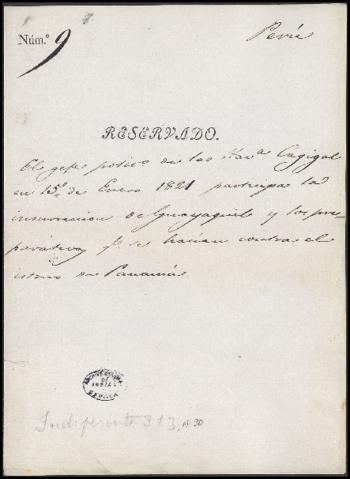 Perú
Núm.º 9
RESERVADO.
El gefe polit.co de la Hav.a Cagigal
en 15 de Enero 1821 participa la
insurreccion de Guayaquil y los pre=
parativos q.e se hacian contra el
istmo de Panamá
ARCHIVO GENERAL
DE
INDIAS
SEVILLA
Indiferente 313, nº 30